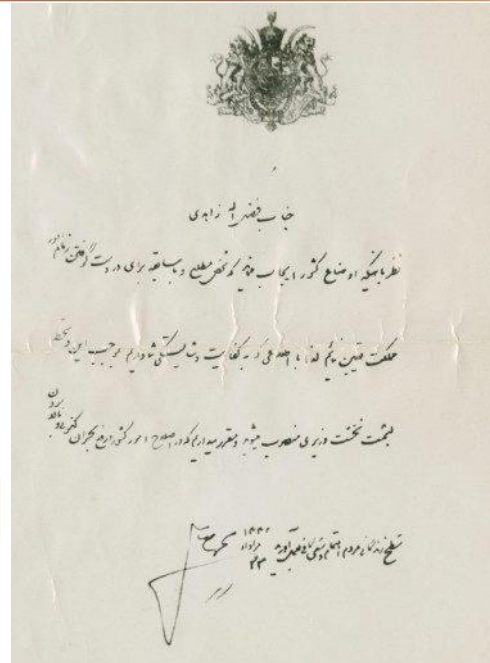 جناب فضل اله زاهدی
نظر باینکه اوضاع کشور ایجاب مینماید که شخص مطلع و با سابقه برای در دست گرفتن زمام امور
مملکت تعیین نمائیم لذا با اطلاعی که به کفایت و شایستگی شما داریم بموجب این دستخط
بسمت نخست وزیری منصوب میشوید و مقرر میداریم که در اصلاح امور کشور و رفع بحران کنونی و بالا بردن
سطح زندگانی مردم اهتمام و سعی کافی بعمل آورید
۲۲ مرداد ۱۳۳۲